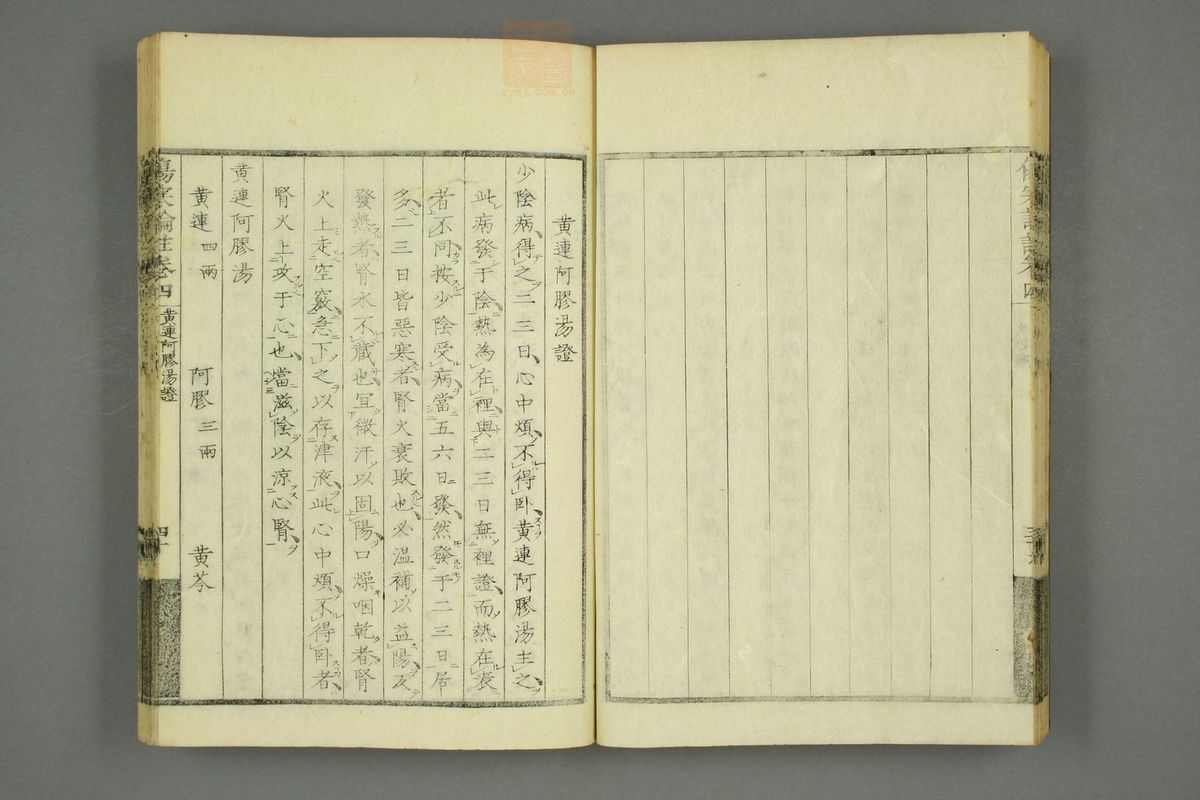 黄連阿膠湯證
少陰病得之二三日心中煩不得卧黄連阿膠湯主之
此病發于陰熱為在裡與二三日無裡證而熱在表
者不同按少陰受病當五六日發然發于二三日居
多二三日皆惡寒者腎火衰敗也必温補以益陽反
發熱者腎水不藏也宜微汗以固陽口燥咽乾者腎
火上走空竅急下之以存津液此心中煩不得卧者
腎火上攻于心也當滋陰以涼心腎
黄連阿膠湯
黄連四兩 阿膠三兩 黄芩
傷寒論註卷四 黄連阿膠湯證 四十